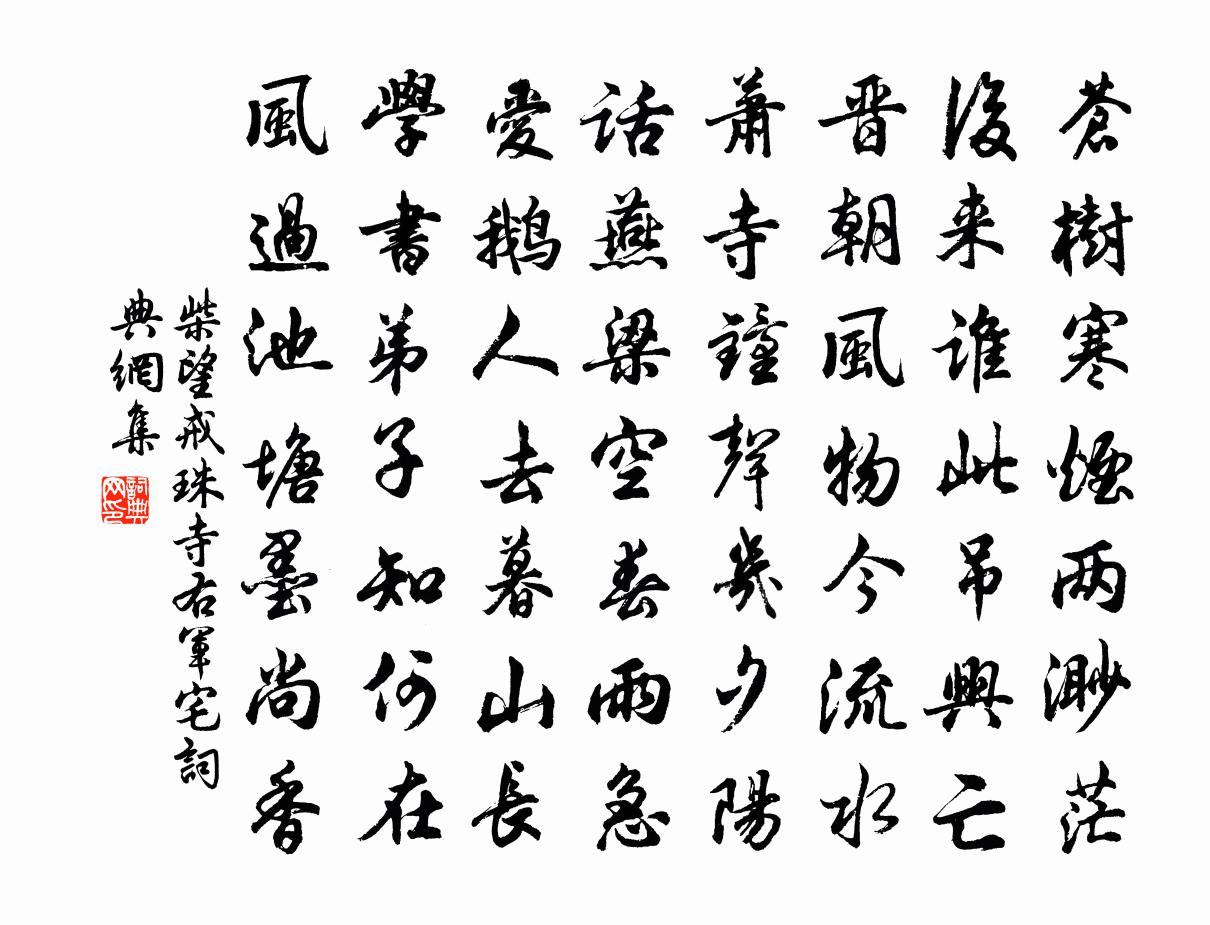 蒼樹寒煙兩渺茫
後来誰此吊興亡
晋朝風物今流水
蕭寺鐘聲幾夕陽
話燕梁空春雨急
愛鵝人去暮山長
學書弟子知何在
風過池塘墨尚香
柴望戒珠寺右軍宅詞
典網集
詞典
网印